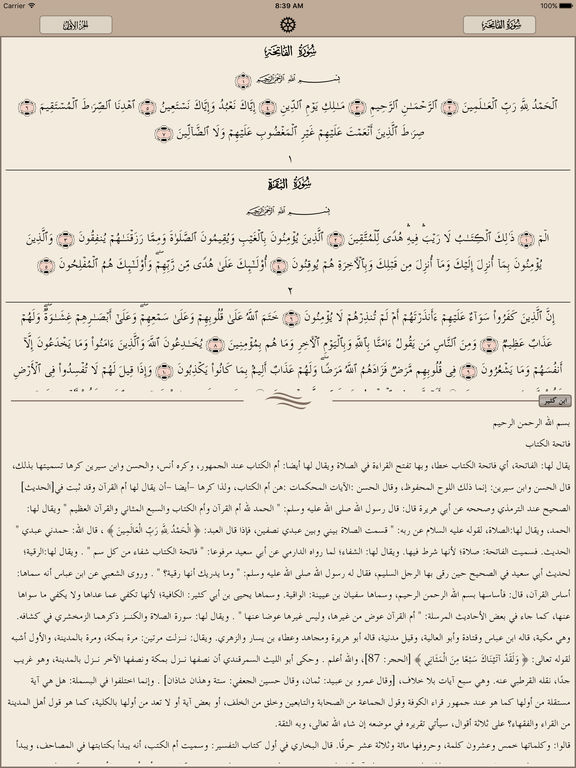 Carrier 8:39 AM 100%
الجزء الأول سورة الفاتحة
سُورَةُ الفَاتِحَةِ
بِسْمِ اللَّهِ الرَّحْمَٰنِ الرَّحِيمِ ١
ٱلْحَمْدُ لِلَّهِ رَبِّ ٱلْعَـٰلَمِينَ ٢ ٱلرَّحْمَـٰنِ ٱلرَّحِيمِ ٣ مَـٰلِكِ يَوْمِ ٱلدِّينِ ٤ إِيَّاكَ نَعْبُدُ وَإِيَّاكَ نَسْتَعِينُ ٥ ٱهْدِنَا ٱلصِّرَٰطَ ٱلْمُسْتَقِيمَ ٦
صِرَٰطَ ٱلَّذِينَ أَنْعَمْتَ عَلَيْهِمْ غَيْرِ ٱلْمَغْضُوبِ عَلَيْهِمْ وَلَا ٱلضَّآلِّينَ ٧
١
سُورَةُ البَقَرَةِ
بِسْمِ اللَّهِ الرَّحْمَٰنِ الرَّحِيمِ
الٓمٓ ١ ذَٰلِكَ ٱلْكِتَـٰبُ لَا رَيْبَ ۛ فِيهِ ۛ هُدًى لِّلْمُتَّقِينَ ٢ ٱلَّذِينَ يُؤْمِنُونَ بِٱلْغَيْبِ وَيُقِيمُونَ ٱلصَّلَوٰةَ وَمِمَّا رَزَقْنَـٰهُمْ يُنفِقُونَ ٣ وَٱلَّذِينَ
يُؤْمِنُونَ بِمَآ أُنزِلَ إِلَيْكَ وَمَآ أُنزِلَ مِن قَبْلِكَ وَبِٱلْـَٔاخِرَةِ هُمْ يُوقِنُونَ ٤ أُو۟لَـٰٓئِكَ عَلَىٰ هُدًى مِّن رَّبِّهِمْ ۖ وَأُو۟لَـٰٓئِكَ هُمُ ٱلْمُفْلِحُونَ ٥
٢
إِنَّ ٱلَّذِينَ كَفَرُوا۟ سَوَآءٌ عَلَيْهِمْ ءَأَنذَرْتَهُمْ أَمْ لَمْ تُنذِرْهُمْ لَا يُؤْمِنُونَ ٦ خَتَمَ ٱللَّهُ عَلَىٰ قُلُوبِهِمْ وَعَلَىٰ سَمْعِهِمْ ۖ وَعَلَىٰٓ أَبْصَـٰرِهِمْ غِشَـٰوَةٌ ۖ وَلَهُمْ
عَذَابٌ عَظِيمٌ ٧ وَمِنَ ٱلنَّاسِ مَن يَقُولُ ءَامَنَّا بِٱللَّهِ وَبِٱلْيَوْمِ ٱلْـَٔاخِرِ وَمَا هُم بِمُؤْمِنِينَ ٨ يُخَـٰدِعُونَ ٱللَّهَ وَٱلَّذِينَ ءَامَنُوا۟ وَمَا يَخْدَعُونَ إِلَّآ
أَنفُسَهُمْ وَمَا يَشْعُرُونَ ٩ فِى قُلُوبِهِم مَّرَضٌ فَزَادَهُمُ ٱللَّهُ مَرَضًا ۖ وَلَهُمْ عَذَابٌ أَلِيمٌۢ بِمَا كَانُوا۟ يَكْذِبُونَ ١٠ وَإِذَا قِيلَ لَهُمْ لَا تُفْسِدُوا۟ فِى ٱلْأَرْضِ
ابن كثير
بسم الله الرحمن الرحيم
فاتحة الكتاب
يقال لها: الفاتحة، أي فاتحة الكتاب خطا، وبها تفتح القراءة في الصلاة ويقال لها أيضا: أم الكتاب عند الجمهور، وكره أنس، والحسن وابن سيرين كرها تسميتها بذلك،
قال الحسن وابن سيرين: إنما ذلك اللوح المحفوظ، وقال الحسن :الآيات المحكمات :هن أم الكتاب، ولذا كرها -أيضا -أن يقال لها أم القرآن وقد ثبت في[الحديث]
الصحيح عند الترمذي وصححه عن أبي هريرة قال: قال رسول الله صلى الله عليه وسلم: " الحمد لله أم القرآن وأم الكتاب والسبع المثاني والقرآن العظيم " ويقال لها:
الحمد، ويقال لها:الصلاة، لقوله عليه السلام عن ربه: " قسمت الصلاة بيني وبين عبدي نصفين، فإذا قال العبد: ﴿ الْحَمْدُ لِلَّهِ رَبِّ الْعَالَمِينَ ﴾ ، قال الله: حمدني عبدي "
الحديث. فسميت الفاتحة: صلاة؛ لأنها شرط فيها. ويقال لها: الشفاء؛ لما رواه الدارمي عن أبي سعيد مرفوعا: " فاتحة الكتاب شفاء من كل سم " . ويقال لها:الرقية؛
لحديث أبي سعيد في الصحيح حين رقى بها الرجل السليم، فقال له رسول الله صلى الله عليه وسلم: " وما يدريك أنها رقية؟ " . وروى الشعبي عن ابن عباس أنه سماها:
أساس القرآن، قال: فأساسها بسم الله الرحمن الرحيم، وسماها سفيان بن عيينة: الواقية. وسماها يحيى بن أبي كثير: الكافية؛ لأنها تكفي عما عداها ولا يكفي ما سواها
عنها، كما جاء في بعض الأحاديث المرسلة: " أم القرآن عوض من غيرها، وليس غيرها عوضا عنها " . ويقال لها: سورة الصلاة والكنز ذكرهما الزمخشري في كشافه.
وهي مكية، قاله ابن عباس وقتادة وأبو العالية، وقيل مدنية، قاله أبو هريرة ومجاهد وعطاء بن يسار والزهري. ويقال: نـزلت مرتين: مرة بمكة، ومرة بالمدينة، والأول أشبه
لقوله تعالى: ﴿ وَلَقَدْ آتَيْنَاكَ سَبْعًا مِنَ الْمَثَانِي ﴾ [الحجر: 87]، والله أعلم . وحكى أبو الليث السمرقندي أن نصفها نـزل بمكة ونصفها الآخر نـزل بالمدينة، وهو غريب
جدًا، نقله القرطبي عنه. وهي سبع آيات بلا خلاف، [وقال عمرو بن عبيد: ثمان، وقال حسين الجعفي: ستة وهذان شاذان] . وإنما اختلفوا في البسملة: هل هي آية
مستقلة من أولها كما هو عند جمهور قراء الكوفة وقول الجماعة من الصحابة والتابعين وخلق من الخلف، أو بعض آية أو لا تعد من أولها بالكلية، كما هو قول أهل المدينة
من القراء والفقهاء؟ على ثلاثة أقوال، سيأتي تقريره في موضعه إن شاء الله تعالى، وبه الثقة.
قالوا: وكلماتها خمس وعشرون كلمة، وحروفها مائة وثلاثة عشر حرفًا. قال البخاري في أول كتاب التفسير: وسميت أم الكتب، أنه يبدأ بكتابتها في المصاحف، ويبدأ